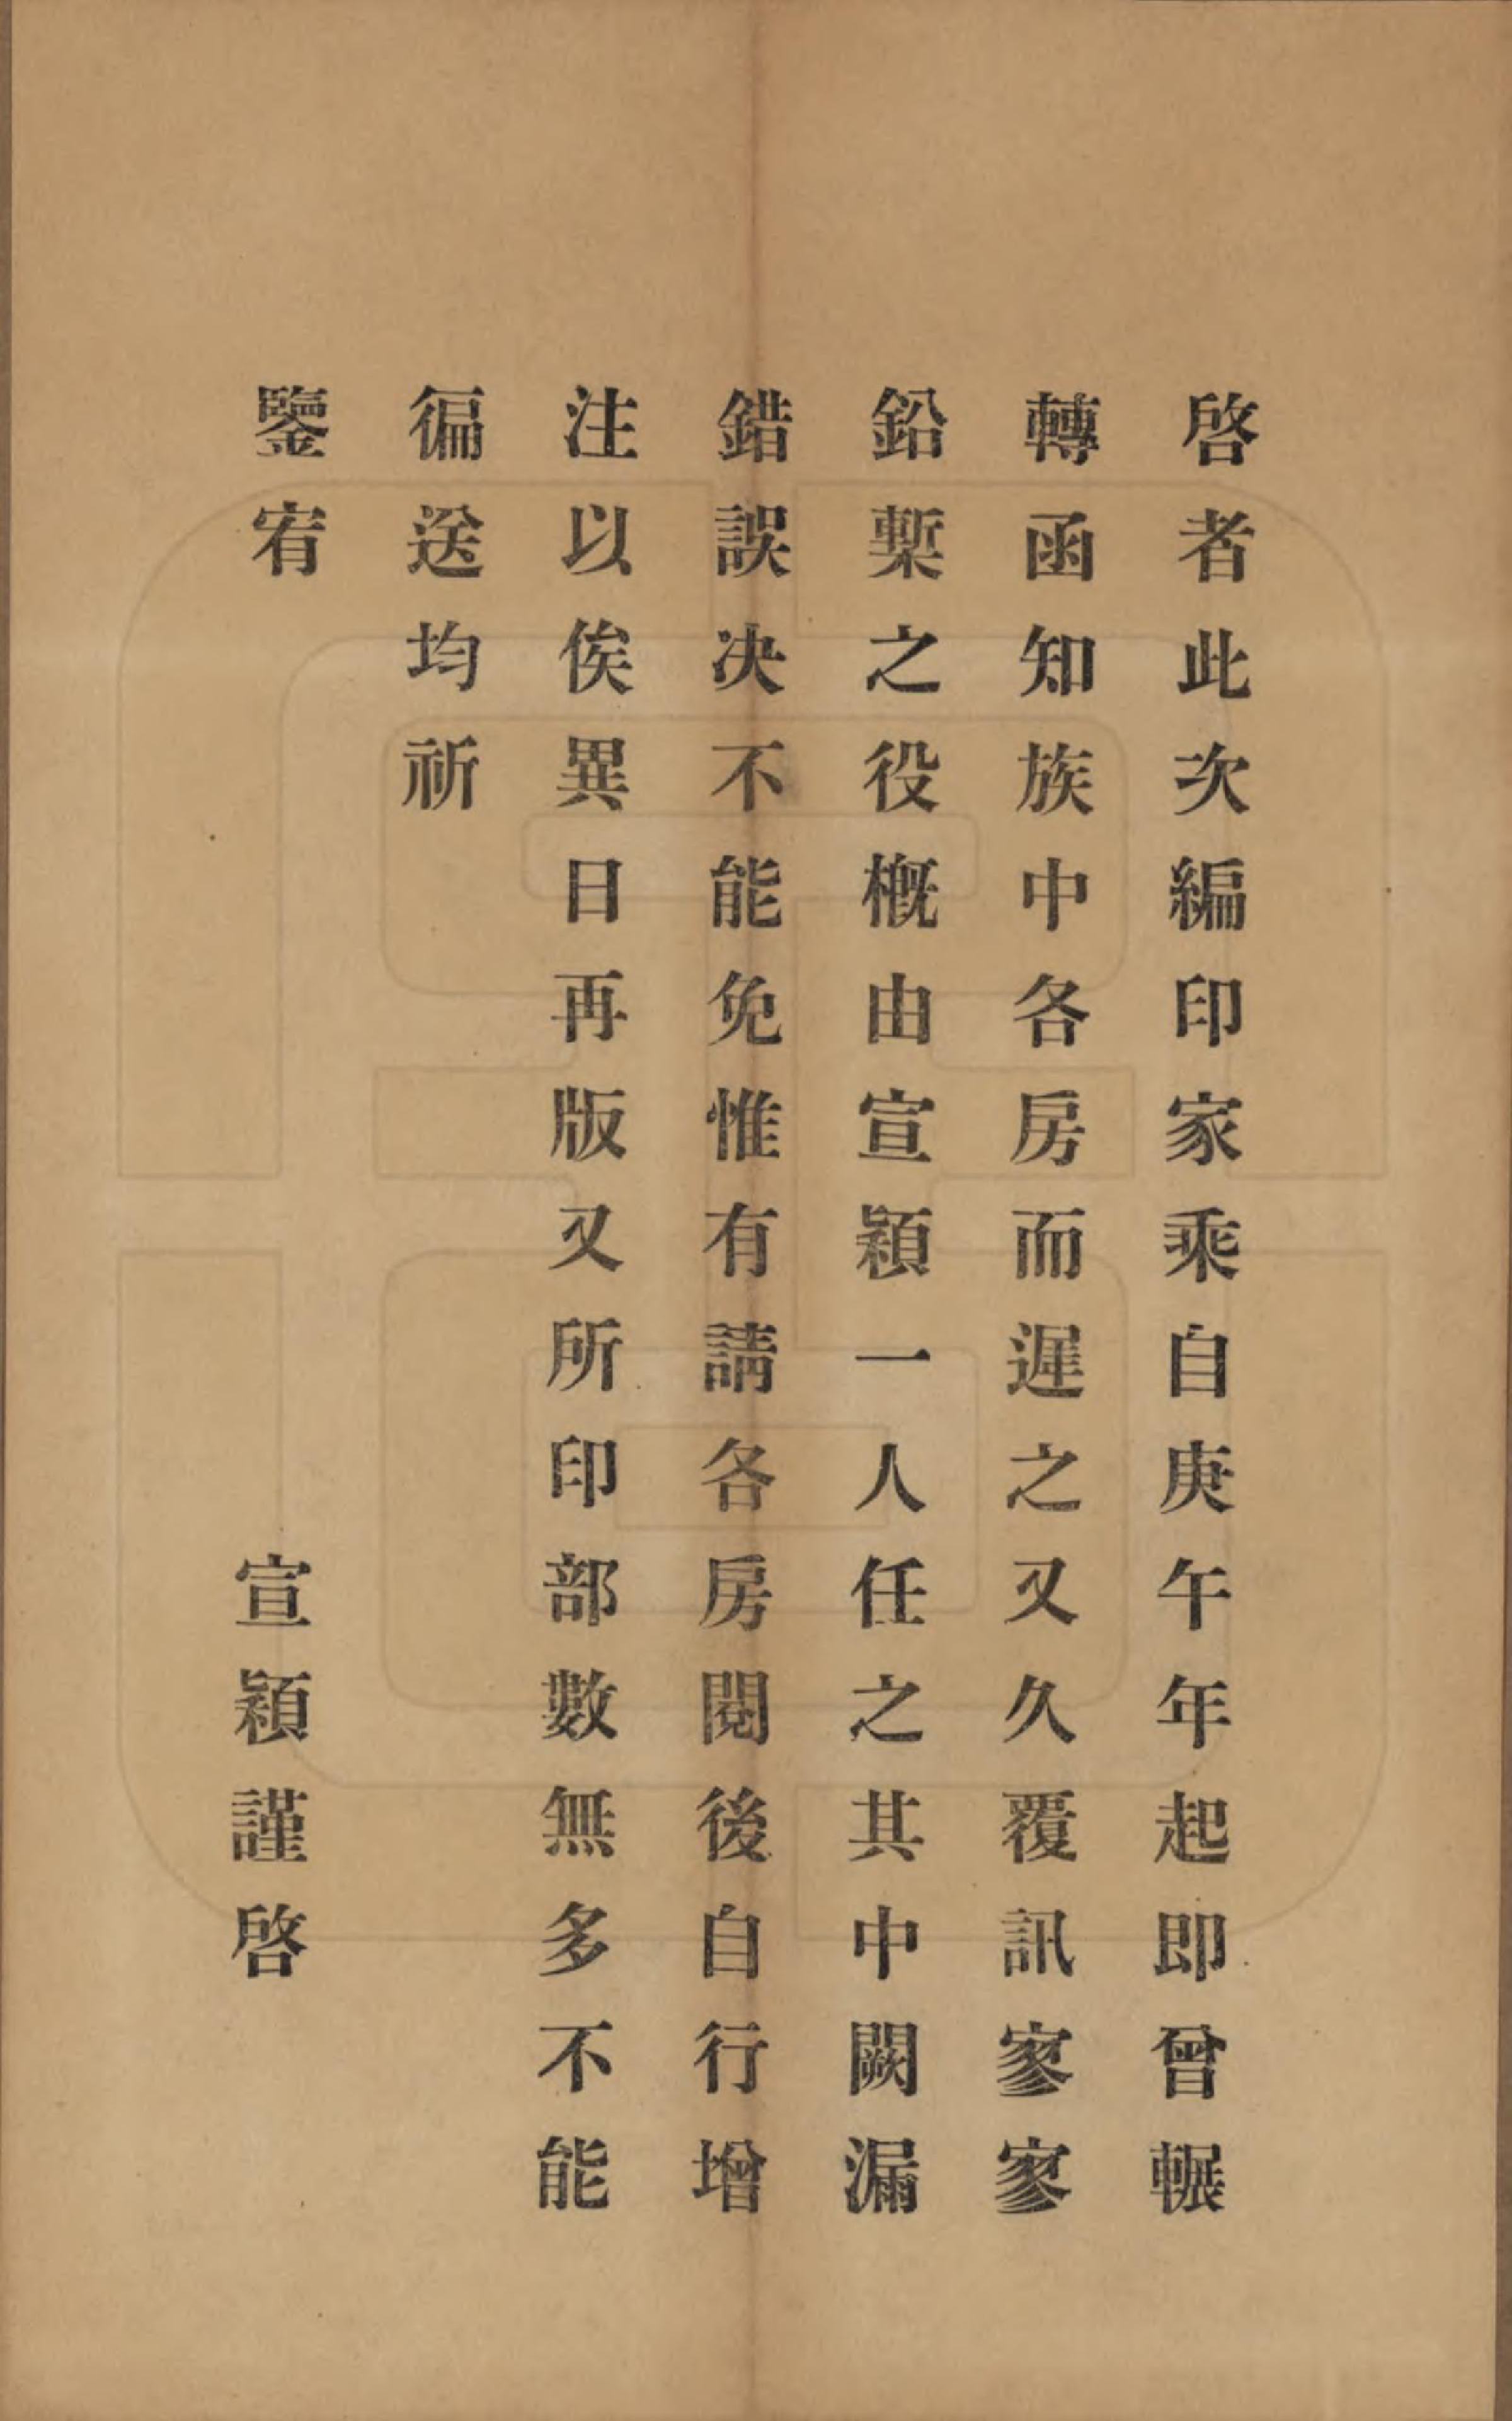 啓者此次編印家乘自庚午年起即曾輾
轉函知族中各房而遲之又久覆訊寥寥
鉛槧之役槪由宣穎一人任之其中闕漏
錯誤決不能免惟有請各房閱後自行增
注以俟異日再版又所印部數無多不能
徧送均祈
鑒宥
宣穎謹啓